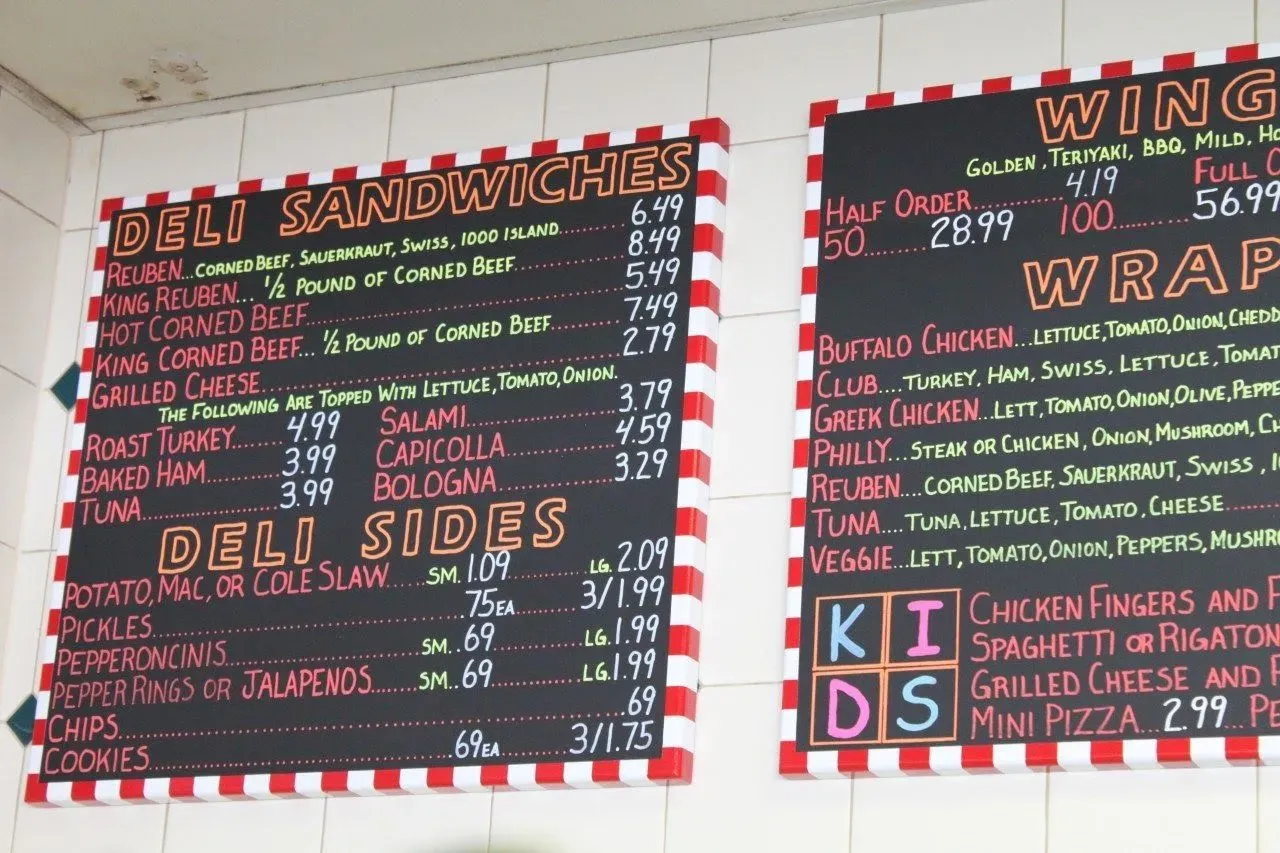 DELI SANDWICHES
REUBEN...CORNED BEEF, SAUERKRAUT, SWISS, 1000 ISLAND........6.49
KING REUBEN... ½ POUND OF CORNED BEEF........8.49
HOT CORNED BEEF........5.49
KING CORNED BEEF... ½ POUND OF CORNED BEEF........7.49
GRILLED CHEESE........2.79
THE FOLLOWING ARE TOPPED WITH LETTUCE, TOMATO, ONION.
ROAST TURKEY.......4.99 SALAMI........3.79
BAKED HAM........3.99 CAPICOLLA........4.59
TUNA........3.99 BOLOGNA........3.29
DELI SIDES
POTATO, MAC, OR COLE SLAW......SM. 1.09........LG. 2.09
PICKLES........75EA........3/1.99
PEPPERONCINIS........SM. .69........LG. 1.99
PEPPER RINGS OR JALAPENOS........SM. .69........LG. 1.99
CHIPS........69
COOKIES........69EA........3/1.75
WING
GOLDEN, TERIYAKI, BBQ, MILD,
HALF ORDER........4.19 FULL
50........28.99 100........56.99
WRAP
BUFFALO CHICKEN...LETTUCE, TOMATO, ONION, CHEDD
CLUB....TURKEY, HAM, SWISS, LETTUCE, TOMAT
GREEK CHICKEN...LETT, TOMATO, ONION, OLIVE, PEPPE
PHILLY...STEAK OR CHICKEN, ONION, MUSHROOM,
REUBEN....CORNED BEEF, SAUERKRAUT, SWISS,
TUNA....TUNA, LETTUCE, TOMATO, CHEESE........
VEGGIE...LETT, TOMATO, ONION, PEPPERS, MUSHR
KIDS
CHICKEN FINGERS AND
SPAGHETTI OR RIGATON
GRILLED CHEESE AND
MINI PIZZA...2.99...PE